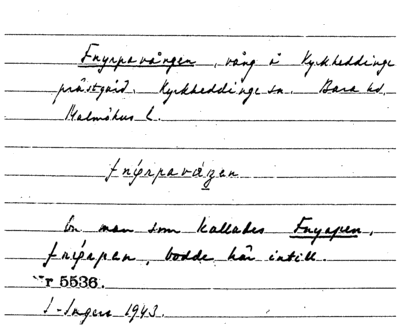 Fnyrpavången, vång å Kyrkheddinge
prästgård. Kyrkheddinge sn. Bara hd.
Malmöhus l.
fnýrpaváŋen
En man som kallades Fnyapen,
fnýapen, bodde här intill.
Nr 5536.
I. Ingers 1943.